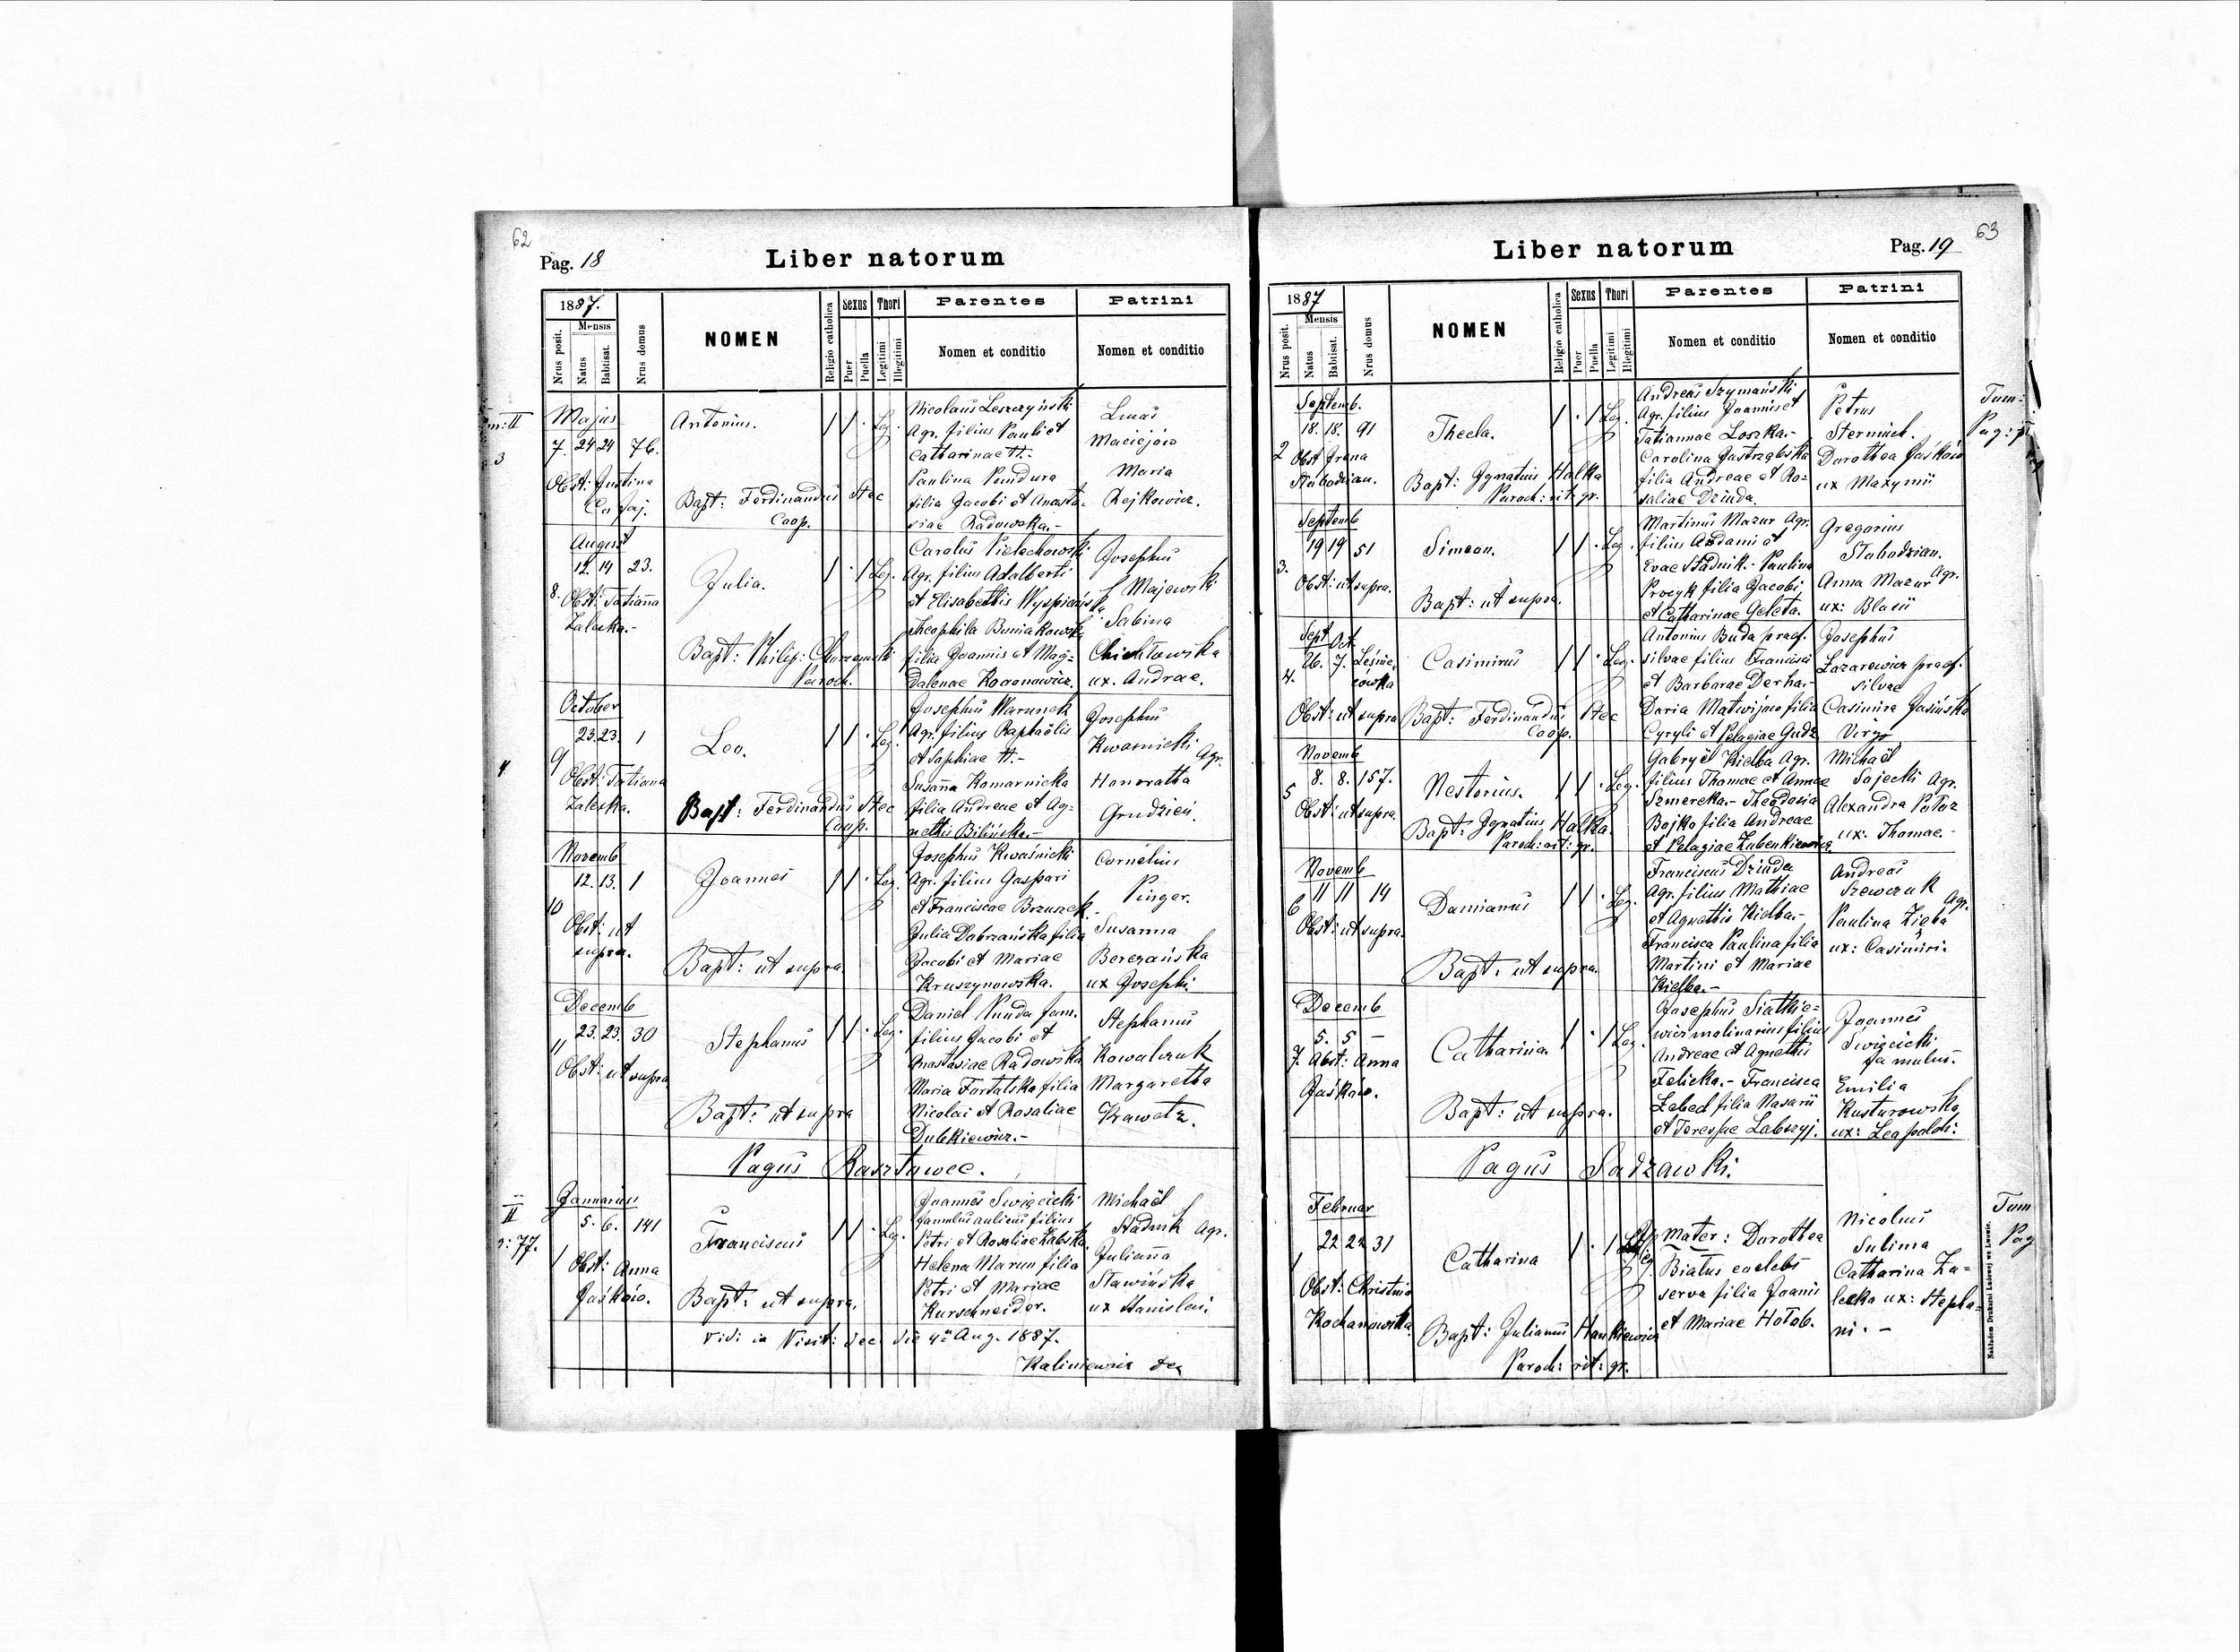 62
Pag. 18
Liber natorum
1887.
Mensis
Nrus posit.
Natus
Babtisat.
Nrus domus
NOMEN
Religio catholica
Sexus
Puer
Puella
Thori
Legitimi
Illegitimi
Parentes
Nomen et conditio
Patrini
Nomen et conditio
Majus
7. 24 24 76.
Obst: Justina
Antonius.
Bapt: Ferdinandus Stec
Coop.
Leg.
Nicolaus Leszczyński
Agr. filius Pauli et
Catharinae H.-
Paulina Pundura
filia Jacobi et Anasta-
siae Radowska.-
Lucas
Maciejów
Maria
Rejkowicz.
August
12. 14 23.
8. Obst: Tatianna
Zalecka.-
Julia.
Bapt: Philip:
Paroch.
Leg.
Carolus Pielechowski
Agr. filius Adalberti
et Elisabethis Wyspiańska
Theophila Buniakowska
filia Joannis et Mag-
dalenae Kononowicz.
Josephus
Majewski
Sabina
Chichłowska
ux. Andreae.
October
23. 23. 1
9
Obst: Tatiana
Zalecka.
Leo.
Bapt: Ferdinandus Stec
Coop.
Leg.
Josephus Warunek
Agr. filius Raphaëlis
et Sophiae H.-
Susanna Komarnicka
filia Andreae et Ag-
nethis Bilińska.-
Josephus
Kwasnicki
Agr.
Honoratha
Grudzień.
Novemb
12. 13. 1
10
Obst: ut
supra.
Joannes
Bapt: ut supra.
Leg.
Josephus Kwaśnicki
Agr. filius Gaspari
et Franciscae Brzuszek.
Julia Dobrzańska filia
Jacobi et Mariae
Kruszynowska.
Cornelius
Pinger.
Susanna
Berezańska
ux Josephi.
Decemb
23. 23. 30
11
Obst: ut supra
Stephanus
Bapt: ut supra
Leg.
Daniel Punda fam.
filius Jacobi et
Anastasiae Radowska
Maria Fortalska filia
Nicolai et Rosaliae
Dubkiewicz.-
Stephanus
Kowalczuk
Margaretha
Krawetz.
Pagus Kasztawec.
Januarius
5. 6. 141
1 Obst: Anna
Jaśków.
Franciscus
Bapt: ut supra.
Leg.
Joannes Swięcicki
famulus aulicus filius
Petri et Rosaliae Labska
Helena Marun filia
Petri et Mariae
Kurschneider.
Michaël
Stadnik Agr.
Julianna
Stawińska
ux Stanislai.
Vidi in Visit: dec. die 4a Aug. 1887.
Kaliniewicz dec
63
Liber natorum
Pag. 19
1887
Mensis
Nrus posit.
Natus
Babtisat.
Nrus domus
NOMEN
Religio catholica
Sexus
Puer
Puella
Thori
Legitimi
Illegitimi
Parentes
Nomen et conditio
Patrini
Nomen et conditio
Septemb.
18. 18. 91
2 Obst Irena
Słabodzian.
Thecla.
Bapt: Ignatius Halka
Paroch: rit: gr.
Leg.
Andreas Szymański
Agr. filius Joannis et
Tatiannae Loszka.-
Carolina Jastrzębska
filia Andreae et Ro-
saliae Dziuda.
Petrus
Sterniuk.
Dorothea Jaśków
ux Maxymii
Tum:
Septemb
19 19 51
3.
Obst: ut supra.
Simeon.
Bapt: ut supra.
Leg.
Martinus Mazur Agr.
filius Adami et
Evae Stadnik.- Paulina
Procyk filia Jacobi
et Catharinae Geleta.
Gregorius
Słabodzian.
Agr.
Anna Mazur
ux: Blasii
Sept Oct.
26. 7. Leśnic-
cówka
4.
Obst: ut supra
Casimirus
Bapt: Ferdinandus Stec
Coop.
Leg.
Antonius Buda praef.
silvae filius Francisci
et Barbarae Derha.-
Daria Matwijow filia
Cyryli et Pelagiae Gudz
Josephus
Lazarewicz praef.
silvae
Casimira Jasińska
Virgo
Novemb
8. 8. 157.
5
Obst: ut supra.
Nestorius.
Bapt: Ignatius Halka.
Paroch: rit: gr.
Leg.
Gabryël Kielba Agr.
filius Thomae et Annae
Szmereka.- Theodosia
Bojko filia Andreae
et Pelagiae Zubenkiewicz.
Michaël
Sajecki Agr.
Alexandra Patoz
ux: Thomae.-
Novemb
11 11 14
6
Obst: ut supra.
Damianus
Bapt: ut supra.
Leg.
Franciscus Dziuda
Agr. filius Mathiae
et Agnethis Kielba.-
Francisca Paulina filia
Martini et Mariae
Kielba.-
Andreas
Szewczuk
Agr.
Paulina Zięba
ux: Casimiri.
Decemb
5. 5 -
7. Obst: Anna
Jaśków.
Catharina.
Bapt: ut supra.
Leg.
Josephus Siatkie-
wicz molinarius filius
Andreae et Agnethis
Felicka.- Francisca
Lebed filia Nasarii
et Teressae Labszyj.
Joannes
Swięcicki
famulus.
Emilia
Kusturowska
ux: Leopoldi.
Pagus Sadzawki.
Februar
22 22 31
1
Obst: Christina
Kochanowska.
Catharina
Bapt: Julianus Hankiewicz
Paroch: rit: gr.
Mater: Dorothea
Białus caelebs
serva filia Joanis
et Mariae Hołob.
Nicolaus
Sulima
Catharina Za-
lecka ux: Stepha-
ni.-
Tum
Pag
Nakładem Drukarni Ludowej we Lwowie.